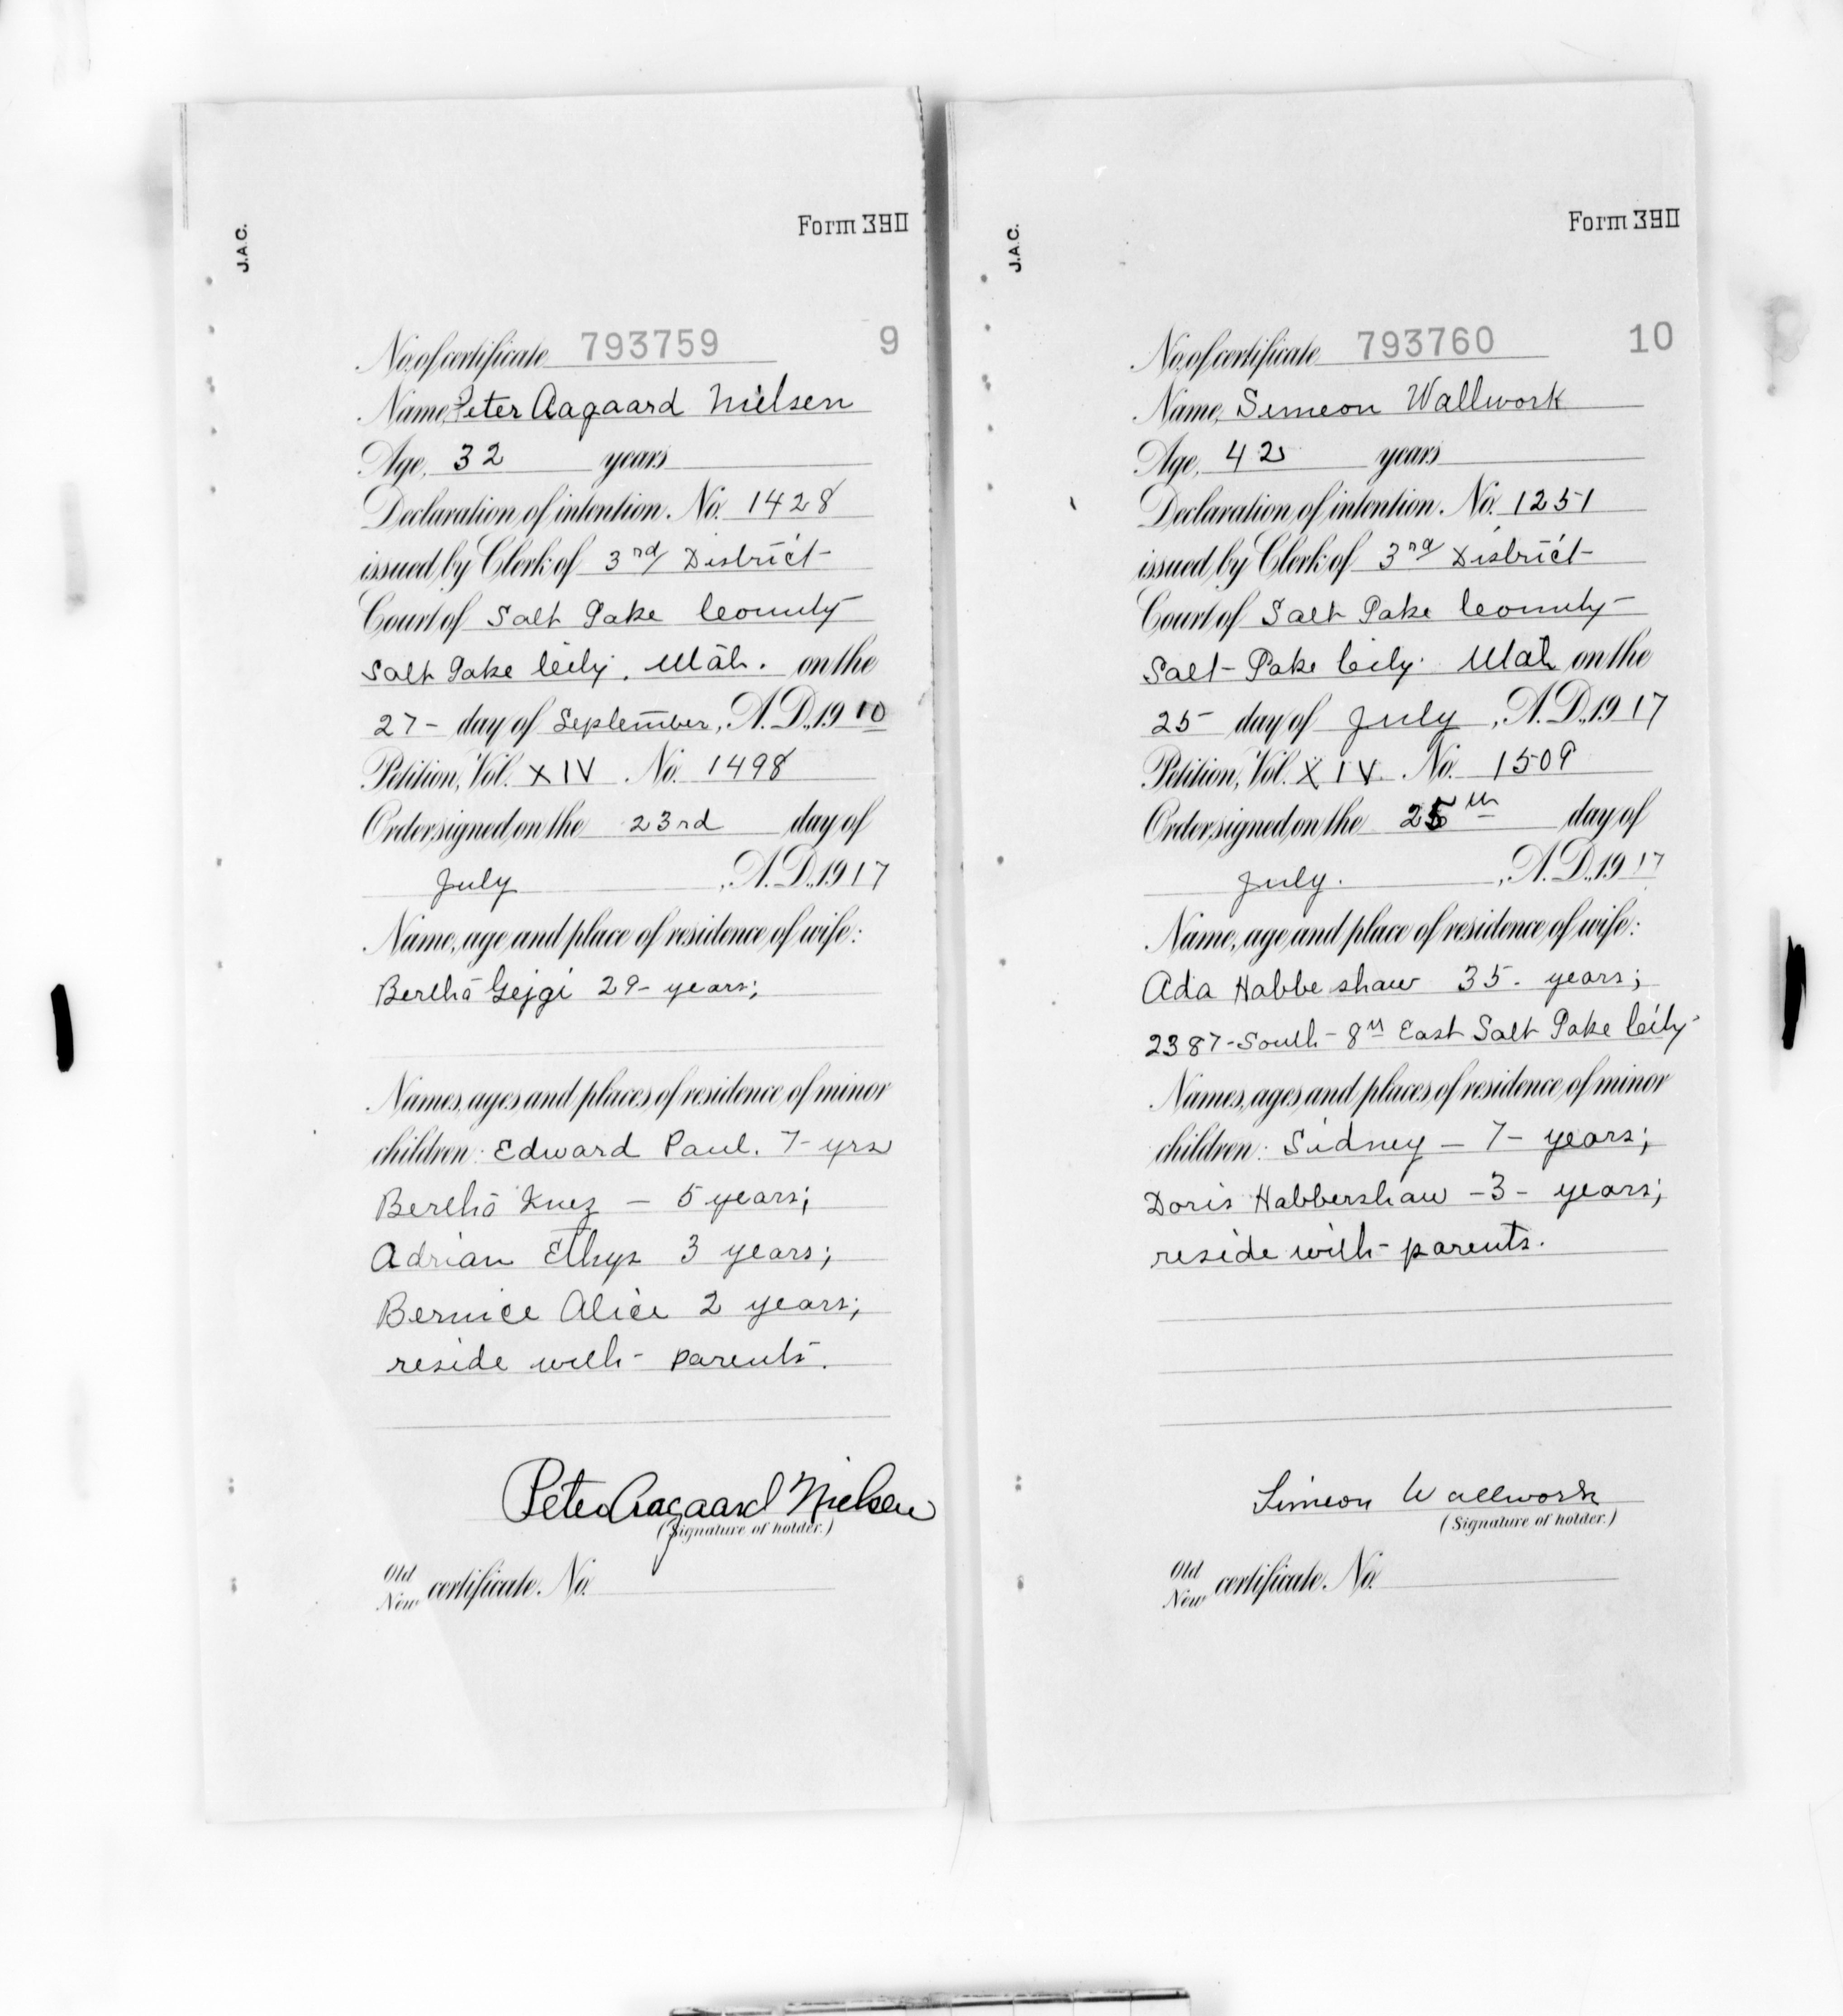 J.A.C.
Form 390
No. of certificate 793759 9
Name, Peter Aagaard Nielsen
Age, 32 years
Declaration of intention, No. 1428
issued by Clerk of 3rd District
Court of Salt Lake County
Salt Lake City. Utah. on the
27- day of September, A.D., 1910
Petition, Vol. XIV No. 1498
Order signed on the 23rd day of
July, A.D., 1917
Name, age and place of residence of wife:
Bertha Gejgi 29- years;
Names, ages and places of residence of minor
children: Edward Paul. 7- yrs
Bertha Inez — 5 years;
Adrian 3 years;
Bernice Alice 2 years;
reside with- parents.
Peter Aagaard Nielsen
(Signature of holder.)
Old
New certificate, No.
J.A.C.
Form 390
No. of certificate 793760 10
Name, Simeon Wallwork
Age, 42 years
Declaration of intention, No. 1251
issued by Clerk of 3rd District
Court of Salt Lake County
Salt- Lake City. Utah on the
25 day of July, A.D., 1917
Petition, Vol. XIV. No. 1509
Order signed on the 25th day of
July., A.D., 1917
Name, age and place of residence of wife:
Ada Habbeshaw 35. years;
2387-South- 8th East Salt Lake City-
Names, ages and places of residence of minor
children: Sidney — 7- years;
Doris Habbershaw -3- years;
reside with- parents.
Simeon Wallwork
(Signature of holder.)
Old
New certificate, No.